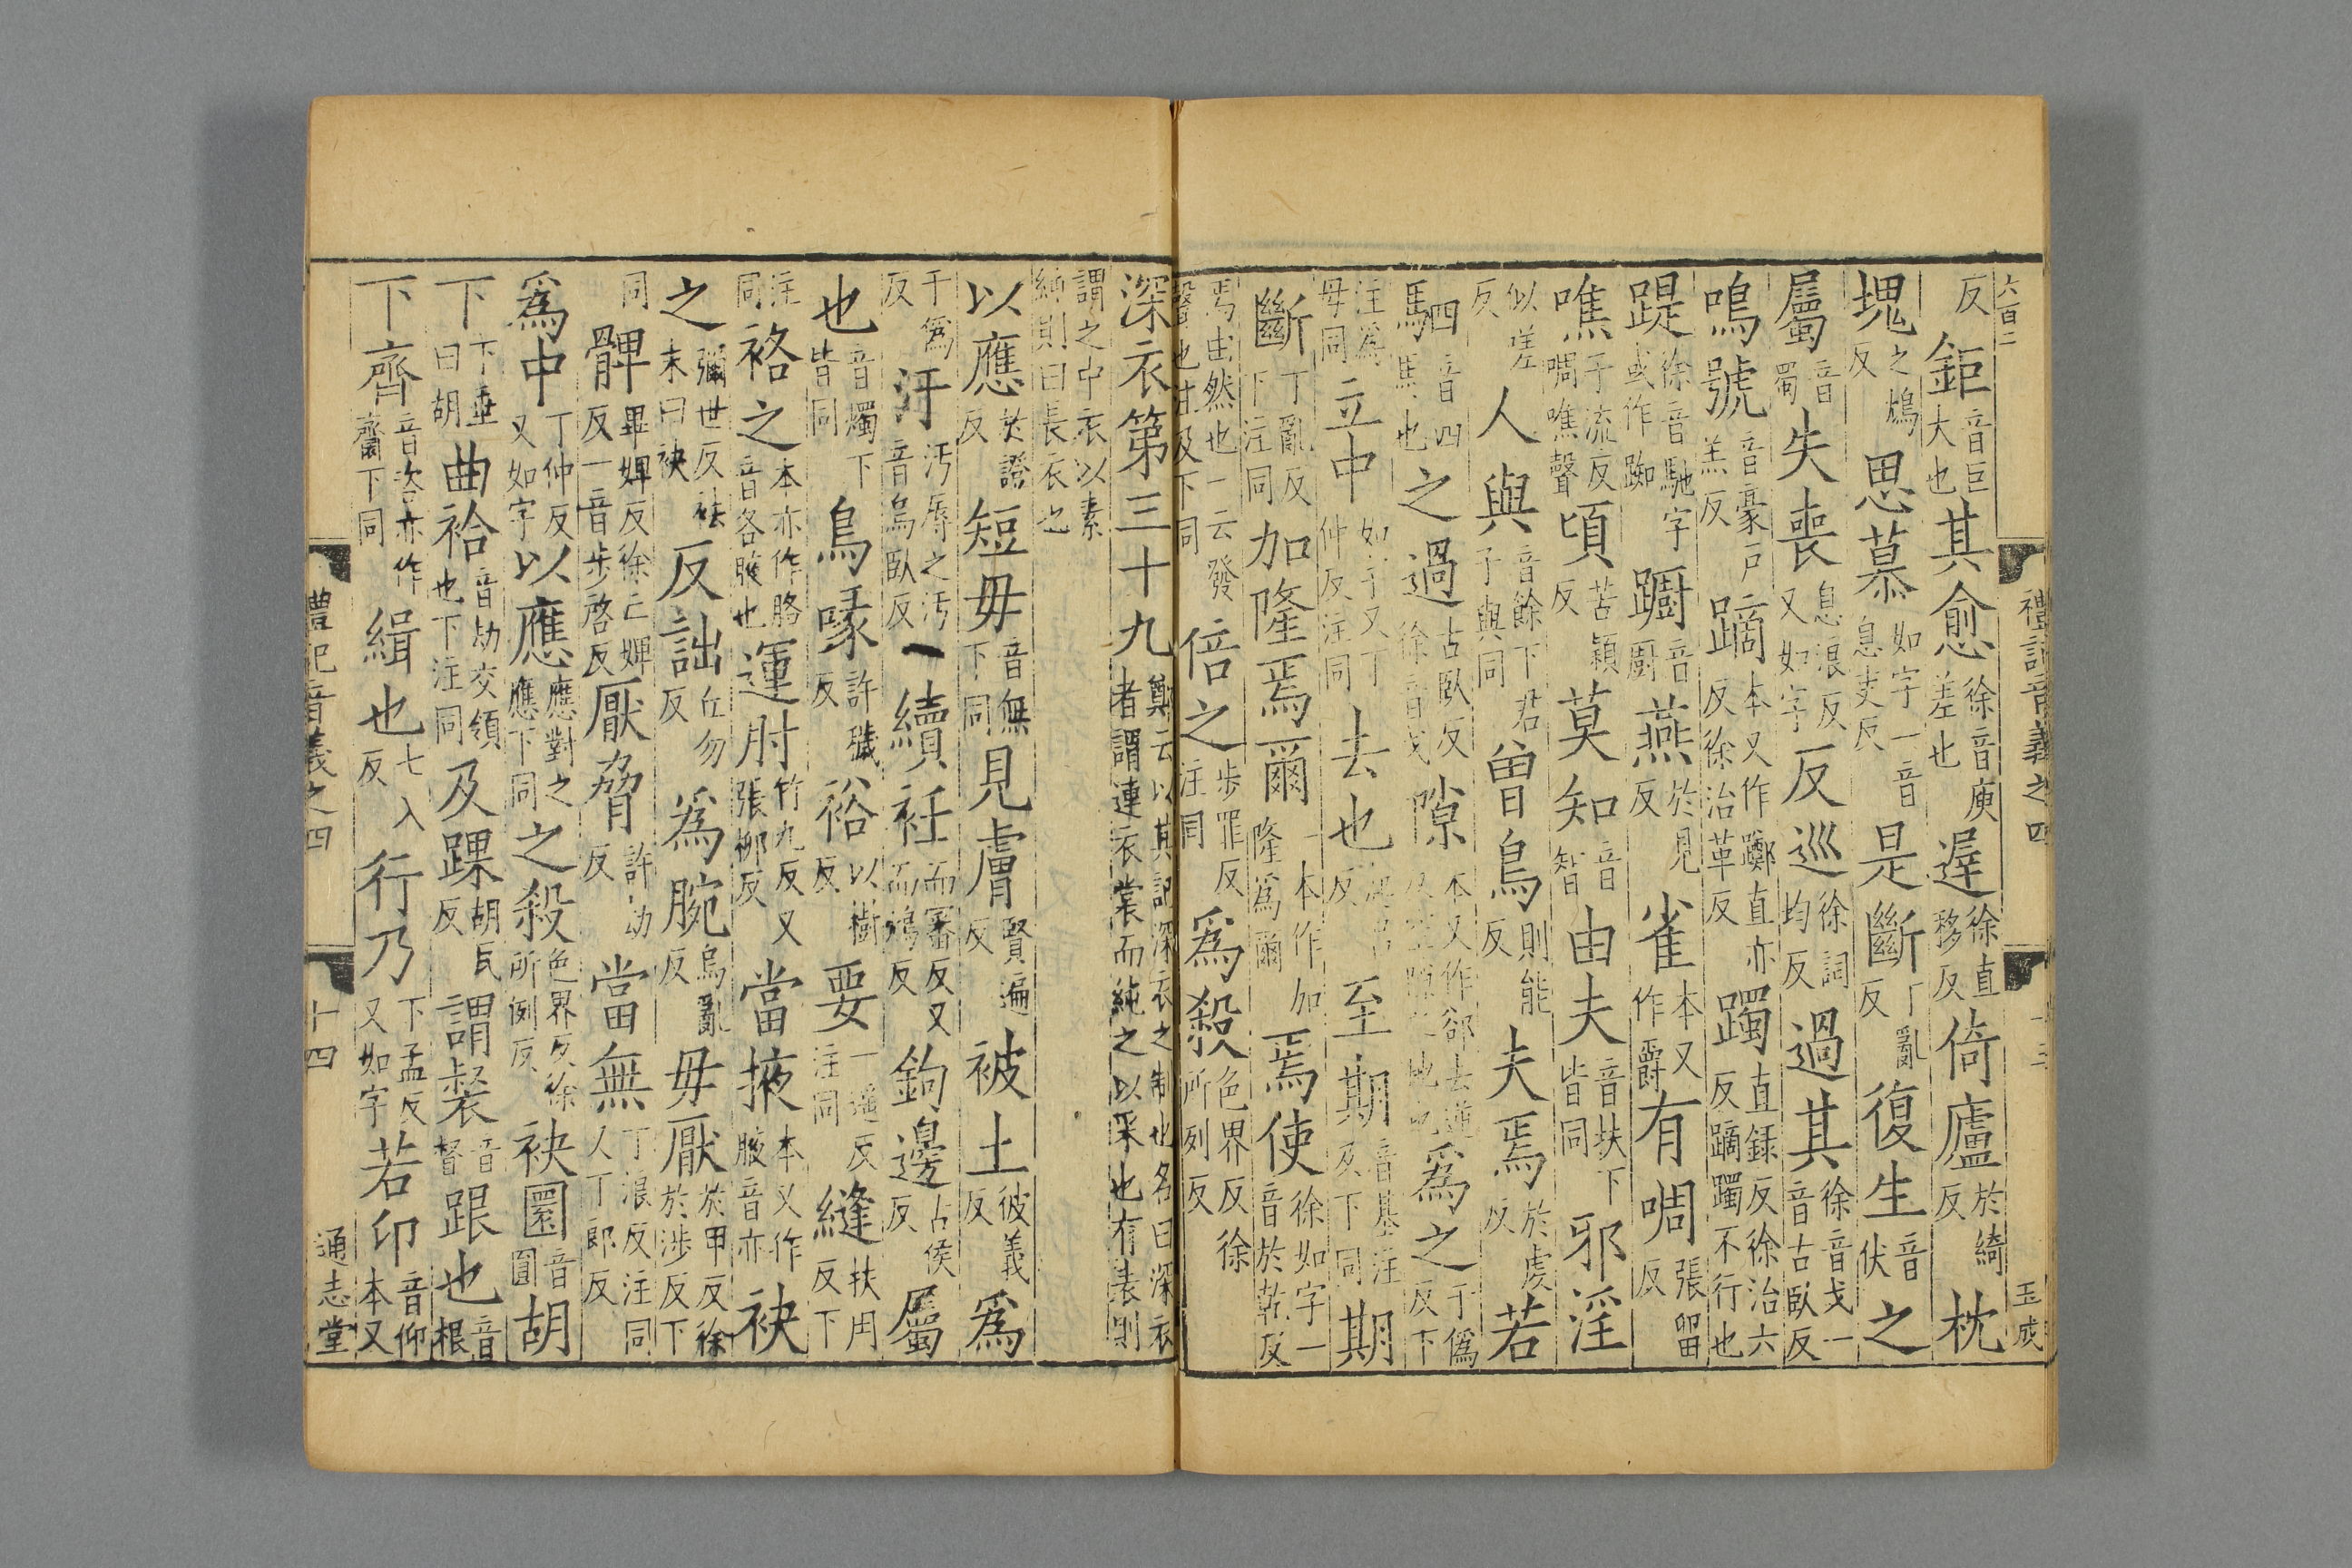 六百二 禮記音義之四 十三 玉成
反鉅音巨大也其愈徐音庾差也遟徐直移反倚廬於綺反枕
塊之鴆反思慕如字一音息吏反是斷丁亂反復生音伏之
屬音蜀失喪息浪反又如字反巡徐詞均反過其徐音戈一音古臥反
鳴號音豪戸羔反蹢本又作躑直亦反徐治革反躅直録反徐治六反蹢躅不行也
踶徐音馳字或作踟蹰音廚燕於見反雀本又作爵有啁張留反
噍子流反啁噍聲頃苦穎反莫知音智由夫音扶下皆同邪淫
似嗟反人與音餘下君子與同曾鳥則能反夫焉於虔反若
駟音四馬也之過古臥反徐音戈隙本又作郤去逆反空隙之地也爲之于僞反下
注爲母同立中如字又丁仲反注同去也起呂反至期音基注及下同期
斷丁亂反下注同加隆焉爾一本作加隆爲爾焉使徐如字一音於虔反
焉由然也一云發聲也注及下同倍之步罪反注同爲殺色界反徐所列反
深衣第三十九鄭云以其記深衣之制也名曰深衣者謂連衣裳而純之以采也有表則
謂之中衣以素純則曰長衣也
以應於證反短毋音無下同見膚賢遍反被土彼義反爲
于僞反汙汚辱之汚音烏臥反一續衽而審反又而鴆反鉤邊古侯反屬
也音燭下皆同鳥喙許穢反裕以樹反要一遥反注同縫扶用反下
注同袼之本亦作胳音各腋也運肘竹九反又張柳反當掖本又作腋音亦袂
之彌世反袪末曰袂反詘丘勿反爲腕烏亂反毋厭於甲反徐於涉反下
同髀畢婢反徐亡婢反一音步啓反厭脅許劫反當無丁浪反注同一丁郎反
爲中丁仲反又如字以應應對之應下同之殺色界反徐所例反袂圜音圓胡
下下垂曰胡曲袷音劫交領也下注同及踝胡瓦反謂裻音督跟也音根
下齊音咨亦作齌下同緝也七入反行乃下孟反又如字若卬音仰本又
禮記音義之四 十四 通志堂